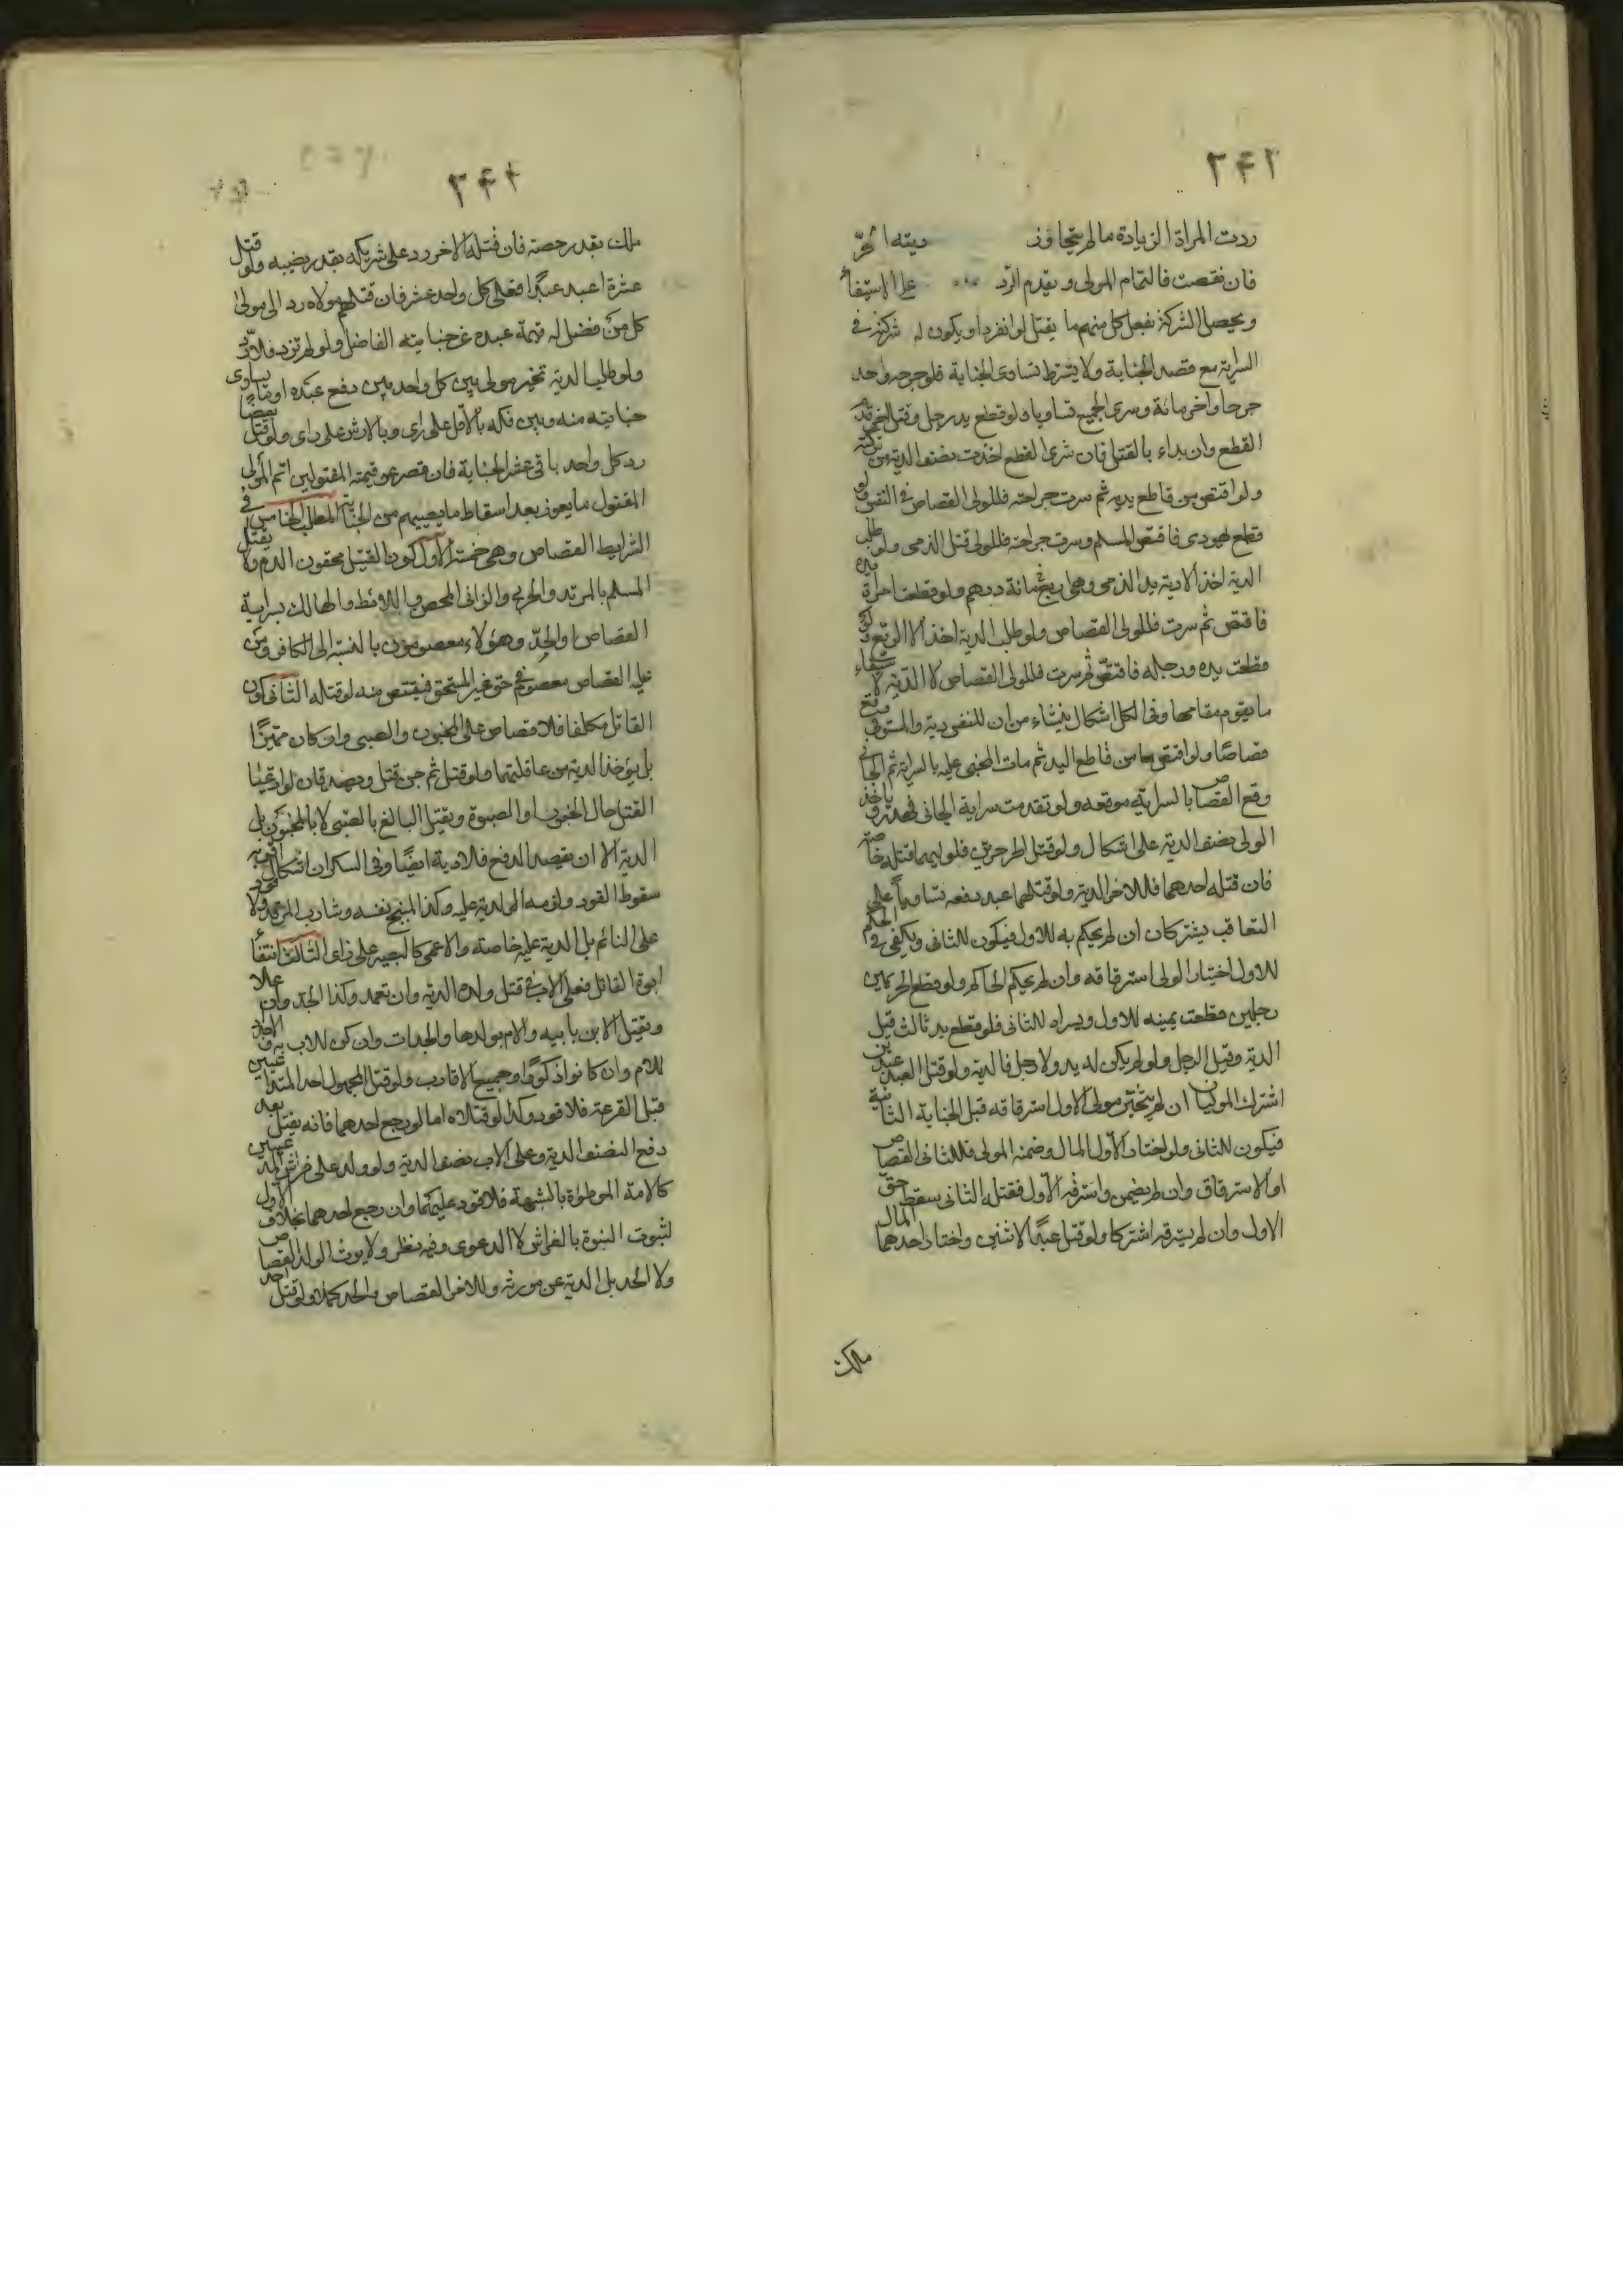 ٢٤٣
ردت المراة الزيادة مالم يتجاوز ديته الحرّ
فان نقصت فالتمام للولى ويقدم الرّد على الاستيفاء
ويحصل الشركة بفعل كل منهم ما يقتل لوانفرد او يكون له شركة فى
السراية مع قصد الجناية ولا يشترط تساوى الجناية فلو جرح واحد
جرحا واخر مائة وسرى الجميع تساويا ولو قطع يد رجل وقتل اخر قدم
القطع وان بداء بالقتل فان سرى القطع اخذت نصف الدية من تركته
ولو اقتص من قاطع يديه ثم سرت جراحته فللولى القصاص فى النفس ولو
قطع يهودى فاقتص المسلم وسرت جراحته فللولى قتل الذمى ولو طلب
الدية اخذ الا دية يد الذمى وهى اربعمائة درهم ولو قطعت امراة يده
فاقتص ثم سرت فللولى القصاص ولو طلب الدية اخذ الا الربع ولو
قطعت يده ورجله فاقتصّ ثم سرت فللولى القصاص لا الدّية لاستيفاء
ما يقوم مقامها وفى الكل اشكال ينشاء من ان للنفس دية والمستوفى وقع
قصاصًا ولو اقتص من قاطع اليد ثم مات المجنى عليه بالسراية ثم الجانى
وقع القصاص بالسراية موقعه ولو تقدمت سراية الجانى فهدر وياخذ
الولى نصف الدية على اشكال ولو قتل الحر حرين فلوليهما قتله خاصة
فان قتله احدهما فللاخر الدية ولو قتلهما عبد دفعه تساويا على
التعاقب يشتركان ان لم يحكم به للاول فيكون للثانى ويكفى فى الحكم
للاول اختيار الولى استرقاقه وان لم يحكم الحاكم ولو قطع الحر يمين
رجلين قطعت يمينه للاول ويسراه للثانى فلو قطع يد ثالث قيل
الدية وقيل الرجل ولو لم يكن له يد ولا رجل فالدية ولو قتل العبد عبدين
اشترك الموليان ان لم يختر مولى الاول استرقاقه قبل الجناية الثانية
فيكون للثانى ولو اختار الاول المال وضمنه المولى فللثانى القصاص
او الاسترقاق وان لم يضمن واسترقه الاول فقتله الثانى سقط حق
الاول وان لم يسترقه اشتركا ولو قتل عبدًا لاثنين واختار احدهما المال
ملك
٢٤٤
ملك بقدر حصته فان قتله الاخر رد على شريكه بقدر نصيبه ولو قتل
عشرة اعبد عبدًا فعلى كل واحد عشر فان قتلهم مولاه رد الى مولى
كل من فضل له قيمة عبده عن جنايته الفاضل ولو لم تزد فلا ردّ
ولو طلب الدية تخير مولى بين كل واحد بين دفع عبده او ما يساوى
جنايته منه وبين فكه بالاقل على راى وبالارش على راى ولو قتل بعضا
رد كل واحد باقى عشر الجناية فان قصر عن قيمة المقتولين اتم المولى
المقتول ما يعوز بعد اسقاط ما يصيبهم من الجناية المطلب الخامس فى
الشرايط القصاص وهى خمسة الاول كون القتيل محقون الدم ولا يقتل
المسلم بالمرتد والحربى والزانى المحصن واللائط والهالك بسراية
القصاص او الحدّ وهؤلاء معصومون بالنسبة الى الكافر ومن
عليه القصاص معصوم فى حق غير المستحق فيقتص منه لو قتله الثانى كون
القاتل مكلفا فلا قصاص على المجنون والصبى وان كان مميزًا
بل يؤخذ الدية من عاقلتهما ولو قتل ثم جن قتل وبصدقان لو ادعيا
القتل حال الجنون او الصبوة ويقتل البالغ بالصبى لا بالمجنون بل
الدية الا ان يقصد الدفع فلا دية ايضًا وفى السكران اشكال اقربه
سقوط القود والزمه الدية عليه وكذا المبنج نفسه وشارب المرقد ولا قود
على النائم بل الدية عليه خاصة والاعمى كالبصير على راى الثالث انتفاء
ابوة القاتل فعلى الاب فى قتل ولده الدية وان تعمد وكذا الجد وان علا
ويقتل الابن بابيه والام بولدها والجدات وان كن للاب به والاجداد
للام وان كانوا ذكورًا وجميع الاقارب ولو قتل المجهول احد المتداعيين
قبل القرعة فلا قود وكذا لو قتلاه اما لو رجع احدهما فانه يقتل بعد
دفع النصف الدية وعلى الاب نصف الدية ولو ولد على فراش المدعيين
كالامة الموطوءة بالشبهة فلا قود عليهما وان رجع احدهما بخلاف الاول
لثبوت البنوة بالفراش لا الدعوى وفيه نظر ولا يرث الولد القصاص
ولا الحد بل الدية عن مورثه وللاخر القصاص والحد كملا ولو قتل احد